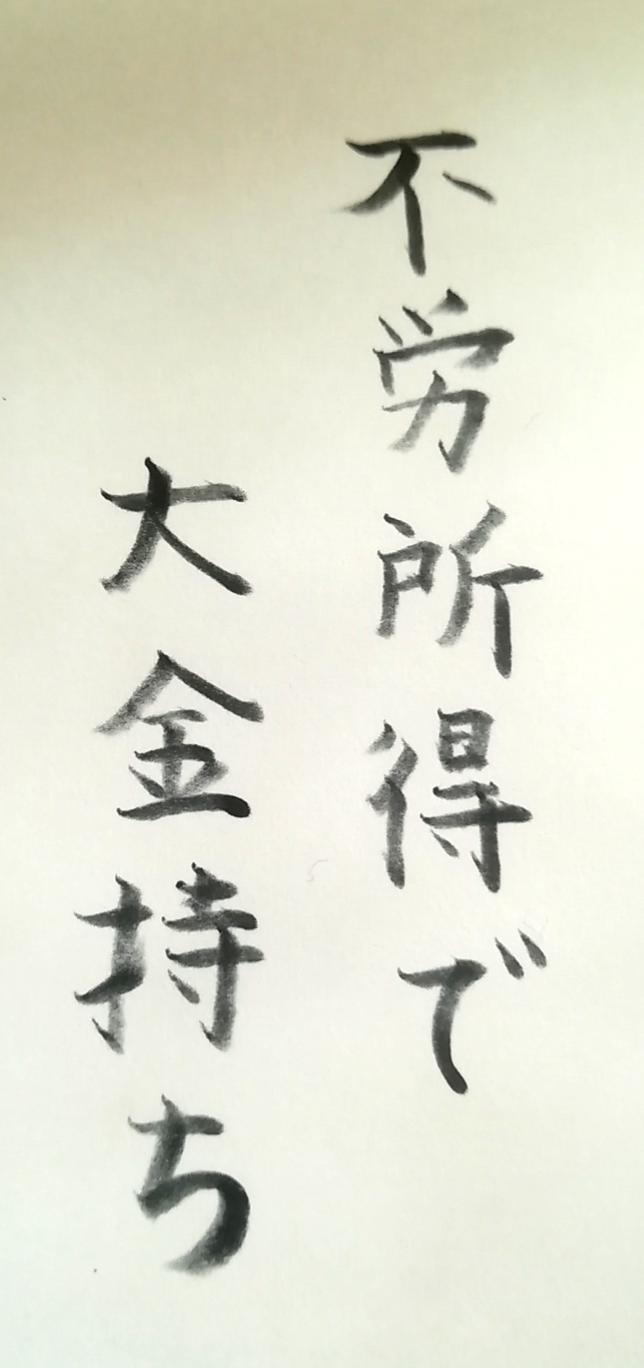 不労所得で
大金持ち